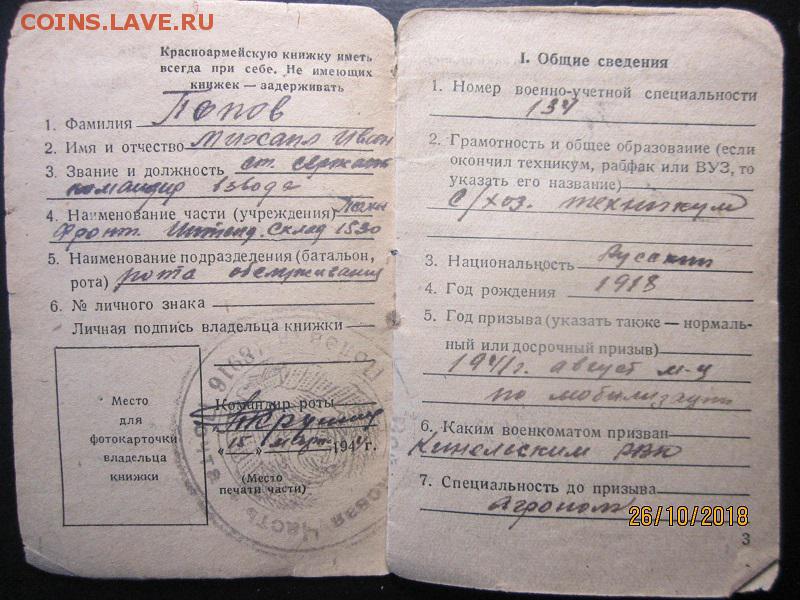 COINS.LAVE.RU
Красноармейскую книжку иметь
всегда при себе. Не имеющих
книжек — задерживать
1. Фамилия Попов
2. Имя и отчество Михаил Иван
3. Звание и должность ст. сержант
командир взвода
4. Наименование части (учреждения)
Фронт. Интенд. склад 1530
5. Наименование подразделения (батальон,
рота) рота обслуживания
6. № личного знака
Личная подпись владельца книжки
Место
для
фотокарточки
владельца
книжки
Командир роты
„15" март 194 г.
(Место
печати части)
I. Общие сведения
1. Номер военно-учетной специальности
134
2. Грамотность и общее образование (если
окончил техникум, рабфак или ВУЗ, то
указать его название)
с/хоз. техникум
3. Национальность Русский
4. Год рождения 1918
5. Год призыва (указать также — нормаль-
ный или досрочный призыв)
1941 г. август м-ц
по мобилизации
6. Каким военкоматом призван
Кинельским РВК
7. Специальность до призыва
агроном
26/10/2018
3